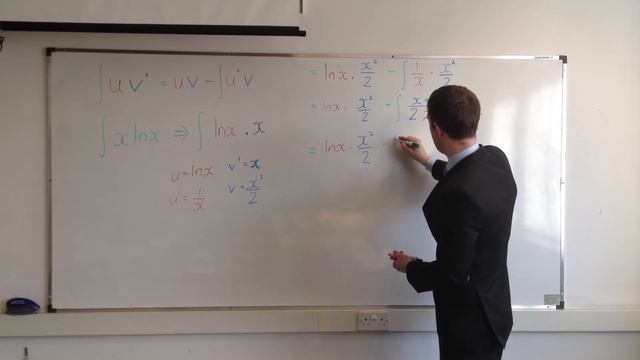 ∫ u v' = uv - ∫ u' v
∫ x lnx ⇒ ∫ lnx . x
u = lnx v' = x
u' = 1/x v = x²/2
= lnx . x²/2 - ∫ 1/x . x²/2
= lnx . x²/2 - ∫
= lnx . x²/2 -